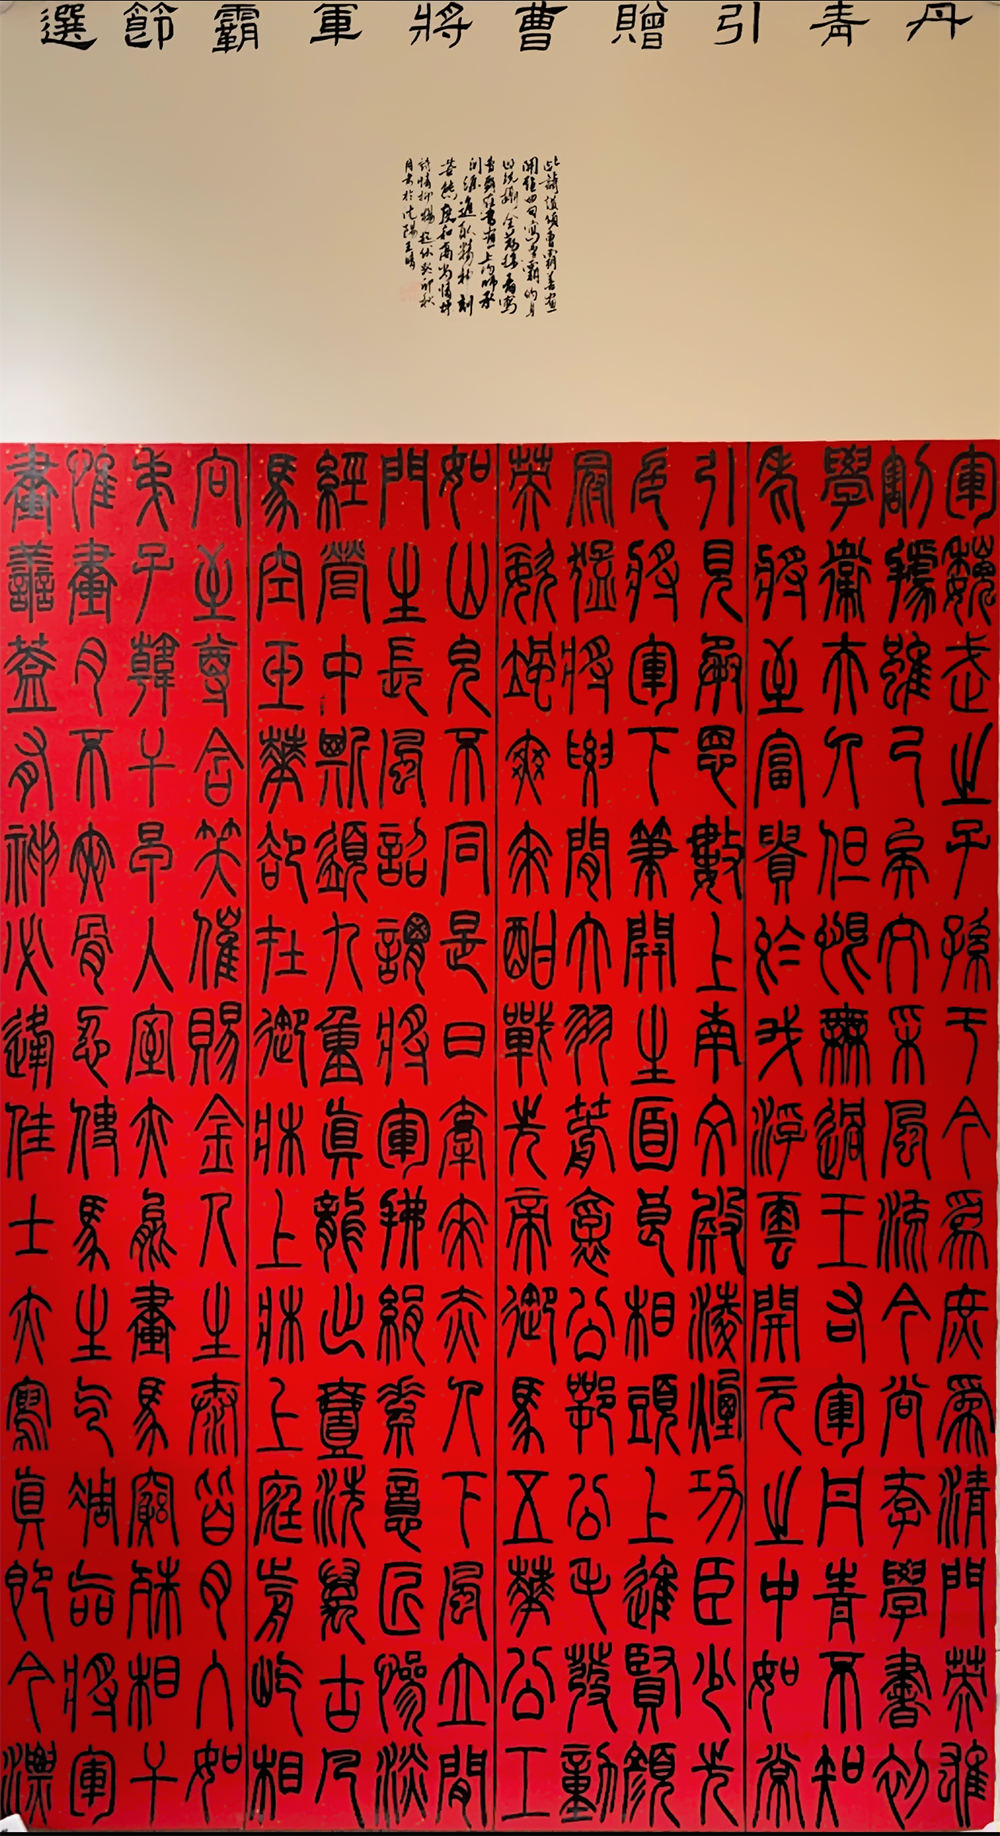 丹青引贈曹將軍霸節選
開頭四句寫曹霸的身
軍魏武之子孫于今爲庶爲清門英雄
割據雖已矣文采風流今尚存學書初
學衛夫人但恨無過王右軍丹青不知
老將至富貴於我浮雲開元之中如常
引見承恩數上南文殿凌煙功臣少光
色將軍下筆開生面良相頭上進賢顏
冠猛將腰間大羽箭褒公鄂公毛發動
英姿颯爽來酣戰先帝御馬五華公工
如山皃不同是日牽來赤人下風立閶
門生長風詔謂將軍拂絹素意匠慘淡
經營中斯須九重真龍出壹洗萬古凡
馬空玉華卻在御牀上牀上庭前屹相
向至尊含笑催賜金人生泰皆月人如
弟子韓干早入室亦能畫馬窮殊相干
惟畫肉不畫骨忍使馬生气凋喪將軍
畫善蓋有神必逢佳士亦寫真即今漂